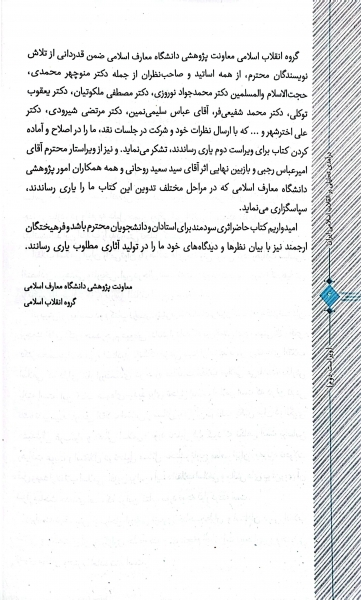 گروه انقلاب اسلامی معاونت پژوهشی دانشگاه معارف اسلامی ضمن قدردانی از تلاش
نویسندگان محترم، از همه اساتید و صاحب‌نظران از جمله دکتر منوچهر محمدی،
حجت‌الاسلام والمسلمین دکتر محمدجواد نوروزی، دکتر مصطفی ملکوتیان، دکتر یعقوب
توکلی، دکتر محمد شفیعی‌فر، آقای عباس سلیمی‌نمین، دکتر مرتضی شیرودی، دکتر
علی اخترشهر و ... که با ارسال نظرات خود و شرکت در جلسات نقد، ما را در اصلاح و آماده
کردن کتاب برای ویراست دوم یاری رساندند، تشکر می‌نماید. و نیز از ویراستار محترم آقای
امیرعباس رجبی و بازبین نهایی اثر آقای سید سعید روحانی و همه همکاران امور پژوهشی
دانشگاه معارف اسلامی که در مراحل مختلف تدوین این کتاب ما را یاری رساندند،
سپاسگزاری می‌نماید.
امیدواریم کتاب حاضر اثری سودمند برای استادان و دانشجویان محترم باشد و فرهیختگان
ارجمند نیز با بیان نظرها و دیدگاه‌های خود ما را در تولید آثاری مطلوب یاری رسانند.
معاونت پژوهشی دانشگاه معارف اسلامی
گروه انقلاب اسلامی
درآمدی تحلیلی بر انقلاب اسلامی ایران
(ویراست دوم)